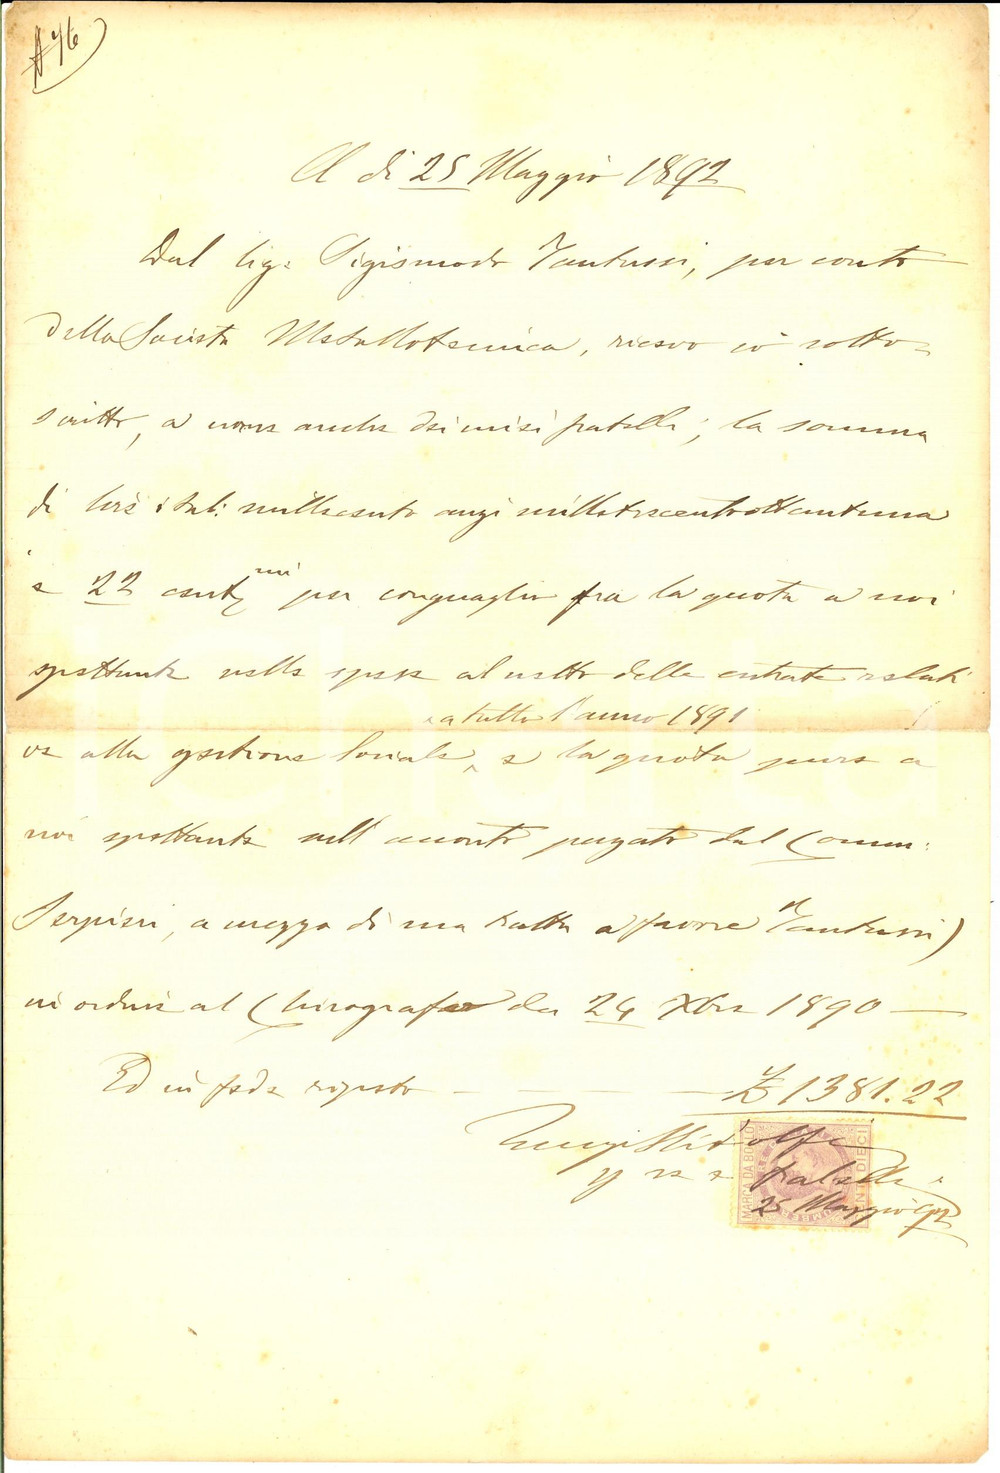 A dì 25 Maggio 1892
Dal Sig. Sigismondo Vantussi, per conto
della Società Metallotecnica, ricevo io sotto-
scritto, a nome anche dei miei fratelli, la somma
di lire ital: millecento anzi milletrecentottantuna
e 22 cent.mi per conguaglio fra la quota a noi
spettante nelle spese al netto delle entrate relati
a tutto l'anno 1891
ve alla gestione sociale, e la quota pure a
noi spettante nell'acconto pagato dal Comm:
Serpieri, a mezzo di una tratta a favore Vantussi)
in ordine al Chirografo da 24 Xbre 1890
Ed in fede rispetto £ 1381.22
Luigi Ridolfi
fratelli
25 Maggio 92
MARCA DA BOLLO
CENT. DIECI